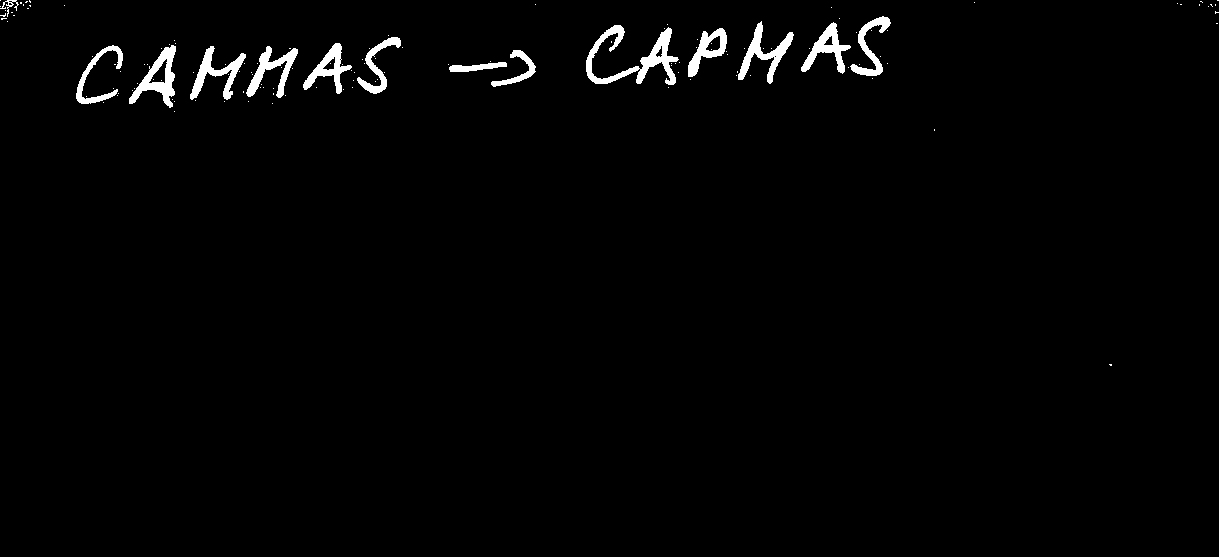 CAMMAS → CAPMAS